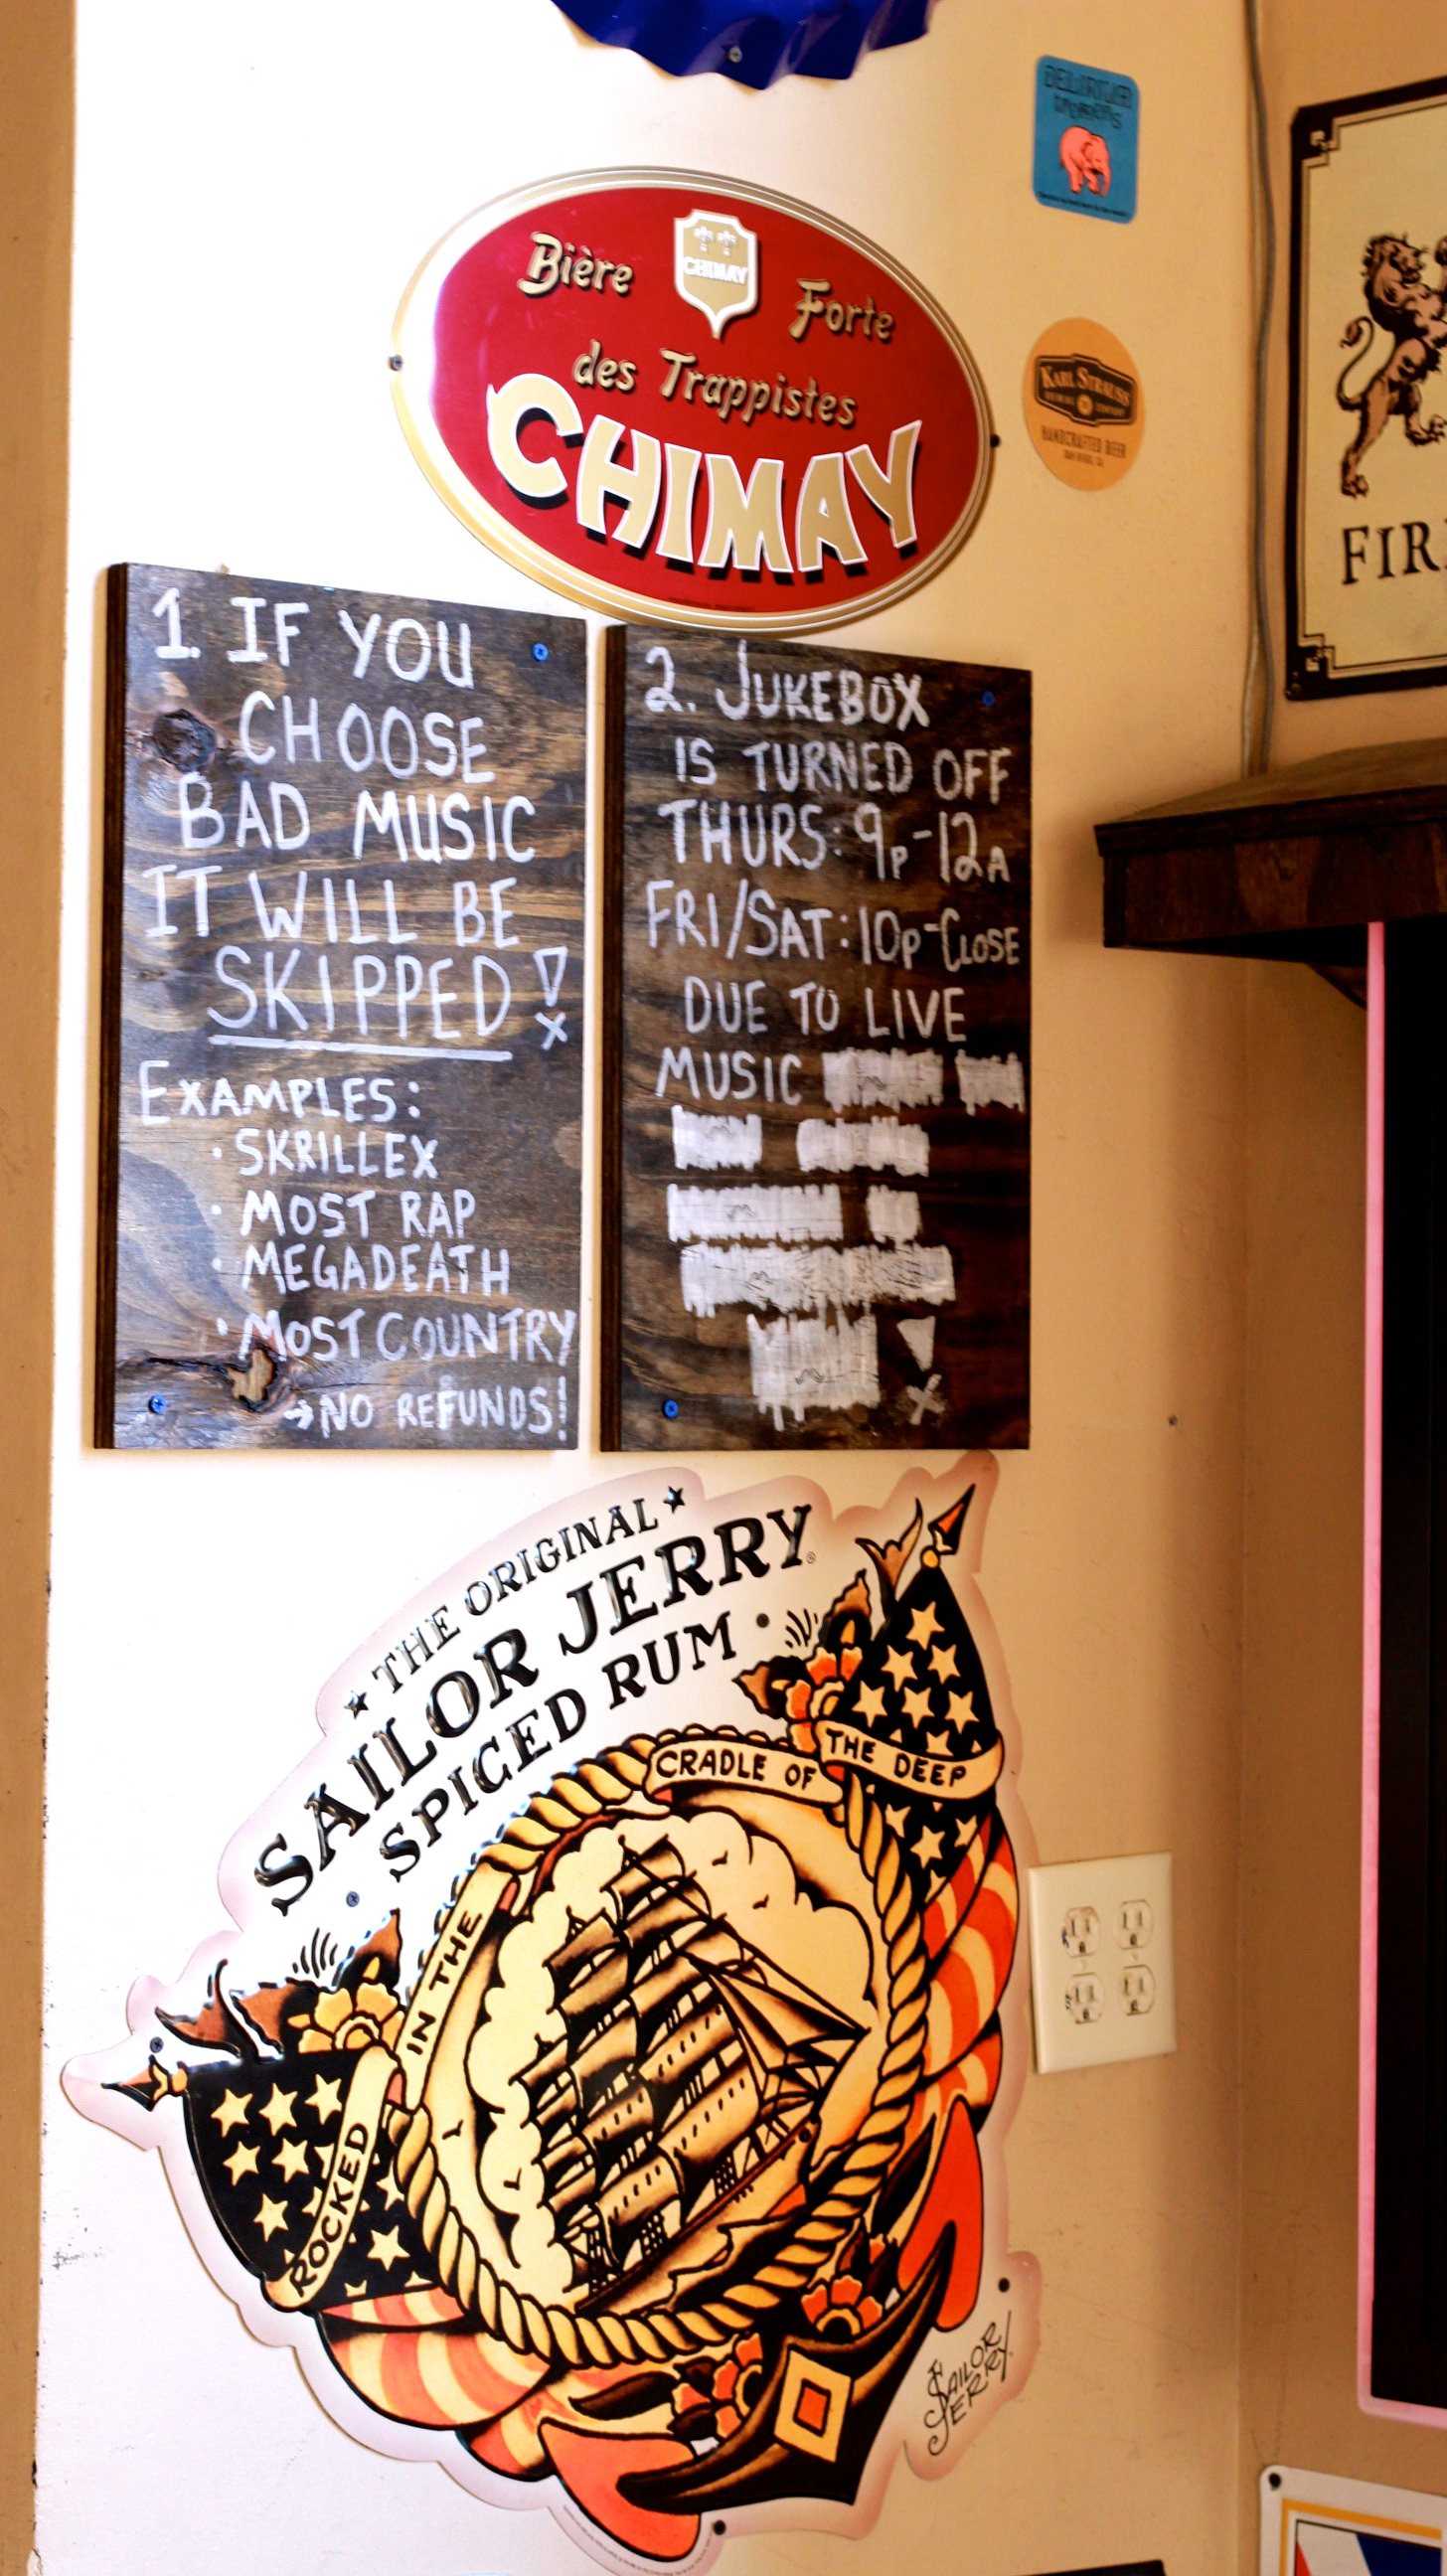 DELIRIUM
tremens
CHIMAY
Bière Forte
des Trappistes
CHIMAY
KARL STRAUSS
BREWING COMPANY
HANDCRAFTED BEER
SAN DIEGO, CA
FIR
1. IF YOU
CHOOSE
BAD MUSIC
IT WILL BE
SKIPPED!
EXAMPLES:
• SKRILLEX
• MOST RAP
• MEGADEATH
• MOST COUNTRY
→ NO REFUNDS!
2. JUKEBOX
IS TURNED OFF
THURS: 9P-12A
FRI/SAT: 10P-CLOSE
DUE TO LIVE
MUSIC
★ THE ORIGINAL ★
SAILOR JERRY®
• SPICED RUM •
ROCKED IN THE CRADLE OF THE DEEP
SAILOR
JERRY